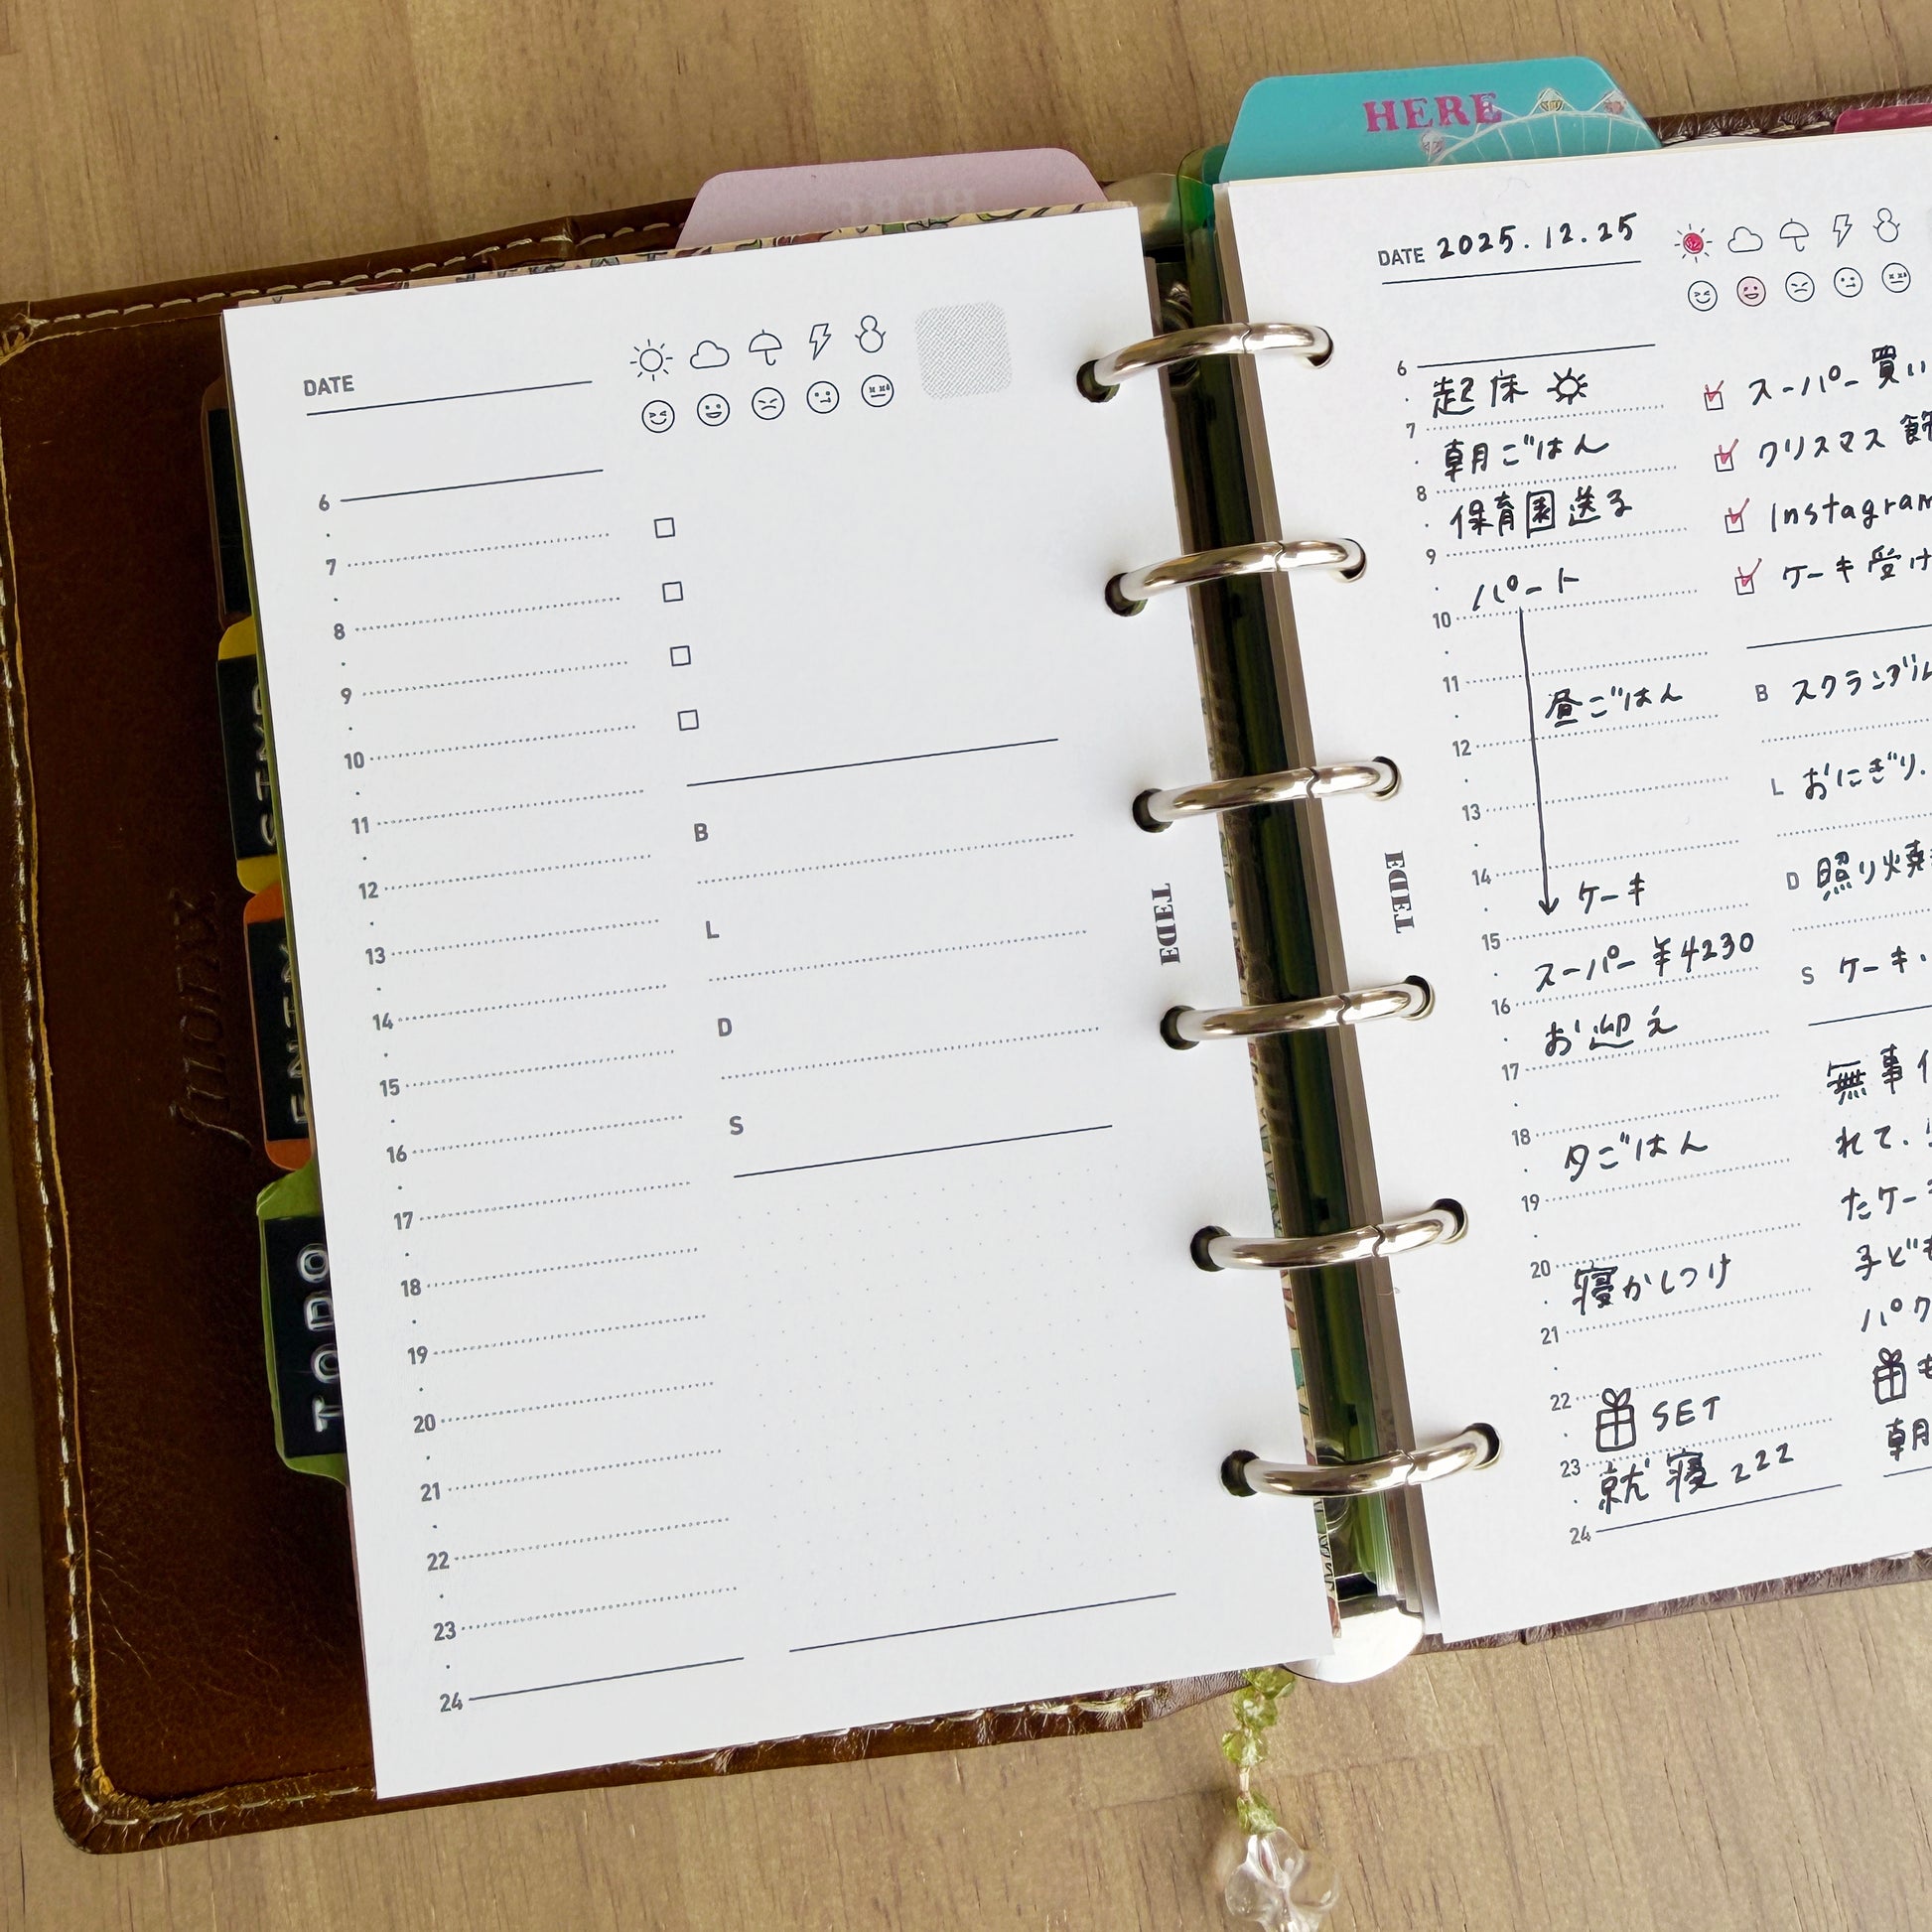 HERE
DATE
6
7
8
9
10
11
12
13
14
15
16
17
18
19
20
21
22
23
24
B
L
D
S
TEDE
TODO
HERE
DATE 2025.12.25
6
起床
7
朝ごはん
8
保育園送る
9
パート
10
11
昼ごはん
12
13
14
ケーキ
15
スーパー ¥4230
16
お迎え
17
18
夕ごはん
19
20
寝かしつけ
21
22
SET
23
就寝 zzz
24
スーパー買い
クリスマス 飾
Instagram
ケーキ受け
B スクランブル
L おにぎり.
D 照り焼
S ケーキ.
無事
れて.
たケー
子ども
パク
朝
TEDE